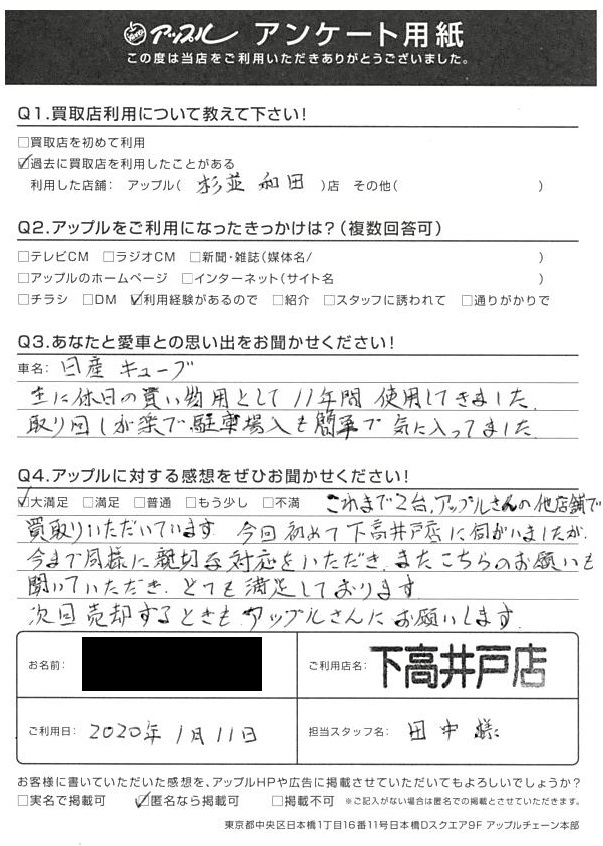 アップル アンケート用紙
この度は当店をご利用いただきありがとうございました。
Q1.買取店利用について教えて下さい!
□買取店を初めて利用
☑過去に買取店を利用したことがある
利用した店舗: アップル( 杉並和田 )店 その他( )
Q2.アップルをご利用になったきっかけは?(複数回答可)
□テレビCM □ラジオCM □新聞・雑誌(媒体名/ )
□アップルのホームページ □インターネット(サイト名 )
□チラシ □DM ☑利用経験があるので □紹介 □スタッフに誘われて □通りがかりで
Q3.あなたと愛車との思い出をお聞かせください!
車名: 日産 キューブ
主に休日の買い物用として11年間使用してきました.
取り回しが楽で駐車場入も簡単で気に入ってました.
Q4.アップルに対する感想をぜひお聞かせください!
☑大満足 □満足 □普通 □もう少し □不満 これまで2台,アップルさんの他店舗で
買取りいただいています. 今回初めて下高井戸店に伺がいましたが,
今まで同様に親切な対応をいただき,またこちらのお願いも
聞いていただき,とても満足しております.
次回売却するときもアップルさんにお願いします.
お名前:
ご利用店名: 下高井戸店
ご利用日: 2020年1月11日
担当スタッフ名: 田中様
お客様に書いていただいた感想を、アップルHPや広告に掲載させていただいてもよろしいでしょうか?
□実名で掲載可 ☑匿名なら掲載可 □掲載不可 ※ご記入がない場合は匿名での掲載とさせていただきます。
東京都中央区日本橋1丁目16番11号日本橋Dスクエア9F アップルチェーン本部